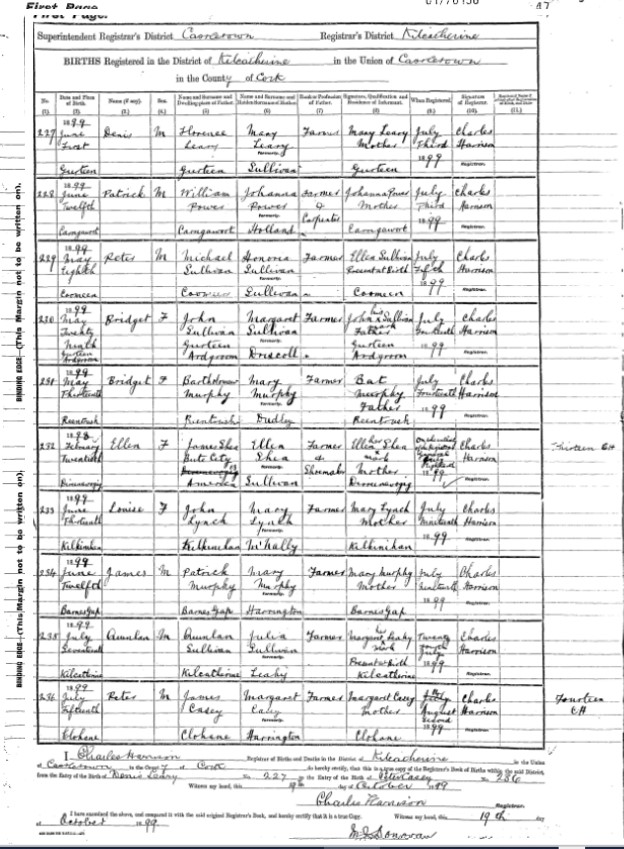 First Page.
47
Superintendent Registrar's District Castletown Registrar's District Kilcatherine
BIRTHS Registered in the District of Kilcatherine in the Union of Castletown
in the County of Cork
No. Date and Place of Birth. Name (if any). Sex. Name and Surname and Dwelling-place of Father. Name and Surname and Maiden Surname of Mother. Rank or Profession of Father. Signature, Qualification and Residence of Informant. When Registered. Signature of Registrar.
(1). (2). (3.) (4.) (5) (6) (7.) (8.) (9.) (10.) (11.)
227 1899 June First Gurteen Denis M Florence Leary Gurteen Mary Leary formerly Sullivan Farmer Mary Leary Mother Gurteen July Third 1899 Charles Harrison Registrar.
228 1899 June Twelfth Patrick M William Power Johanna Power formerly Holland Farmer & Carpenter Johanna Power Mother July Third 1899 Charles Harrison Registrar.
229 1899 May Eighth Coomeen Peter M Michael Sullivan Coomeen Honorea Sullivan formerly Sullivan Farmer Ellen Sullivan Present at Birth Coomeen July Fifth 1899 Charles Harrison Registrar.
230 1899 May Twenty Ninth Gurteen Ardgroom Bridget F John Sullivan Gurteen Ardgroom Margaret Sullivan formerly Driscoll Farmer John his x mark Sullivan Father Gurteen Ardgroom July 1899 Charles Harrison Registrar.
231 1899 May Thirteenth Bridget F Bartholomew Murphy Mary Murphy formerly Dudley Farmer Bat Murphy Father July Fourteenth 1899 Charles Harrison Registrar.
232 1898 February Twentieth Ellen F James Shea Bute City America Ellen Shea formerly Sullivan Farmer & Shoemaker Ellen her x mark Shea Mother 1899 Charles Harrison Registrar.
Thirteen CH
233 1899 June Kilkinihan Louise F John Lynch Kilkinihan Mary Lynch formerly McNally Farmer Mary Lynch Mother Kilkinihan July Nineteenth 1899 Charles Harrison Registrar.
234 1899 June Twelfth Barnes Gap James M Patrick Murphy Barnes Gap Mary Murphy formerly Harrington Farmer Mary Murphy Mother Barnes Gap July 1899 Charles Harrison Registrar.
235 1899 July Seventeenth Kilcatherine Quinlan M Quinlan Sullivan Kilcatherine Julia Sullivan formerly Leahy Farmer Margaret her x mark Leahy Present at Birth Kilcatherine Twenty July 1899 Charles Harrison Registrar.
236 1899 July Fifteenth Clohane Peter M James Casey Clohane Margaret Casey formerly Harrington Farmer Margaret Casey Mother Clohane August Second 1899 Charles Harrison Registrar.
Fourteen CH
BINDING EDGE—(This Margin not to be written on).
BINDING EDGE—(This Margin not to be written on).
I, Charles Harrison Registrar of Births and Deaths in the District of Kilcatherine in the Union
of Castletown in the County of Cork do hereby certify, that this is a true copy of the Registrar's Book of Births within the said District,
from the Entry of the Birth of Denis Leary No. 227 to the Entry of the Birth of Peter Casey No. 236
Witness my hand, this 19th day of October 1899
Charles Harrison Registrar.
I have examined the above, and compared it with the said original Register's Book, and hereby certify that it is a true Copy. Witness my hand, this 19th day
of October 1899